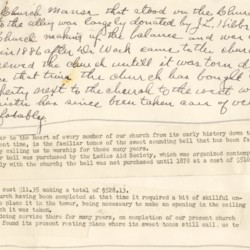 Church Manse that stood on the Chur
to the alley was largely donated by J. L. Hibb
Church making up the balance and was
in 1886 after Dr. Work came to the chur
ewed the church untill it was torn d
ce that time the church has bought
perty next to the church to the west w
nistry has since been taken care of ve
fortably
ar to the heart of every member of our church from its early history down t
sent time, is the familiar tones of the sweet sounding bell that has been f
y calling us to worship for these many years.
r bell was purchased by the Ladies Aid Society, which was organized contemp
ely with the church; the bell was not purchased until 1878 at a cost of $516
cost $11.35 making a total of $528.13.
urch having been completed at that time it required a bit of skillful en-
o place it in the tower, being necessary to make an opening in the ceiling
ch it was taken.
doing service there for many years, on completion of our present church
found its present resting place where its sweet tones still call, us to